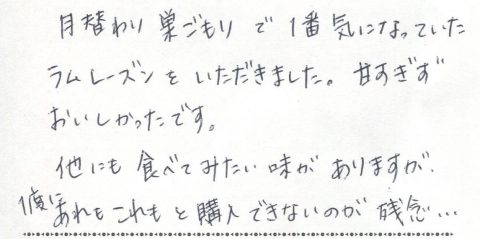 月替わり 巣ごもり で 1番 気になっていた
ラムレーズンを いただきました。甘すぎず
おいしかったです。
他にも 食べてみたい 味が ありますが、
あれもこれもと 購入 できないのが 残念…